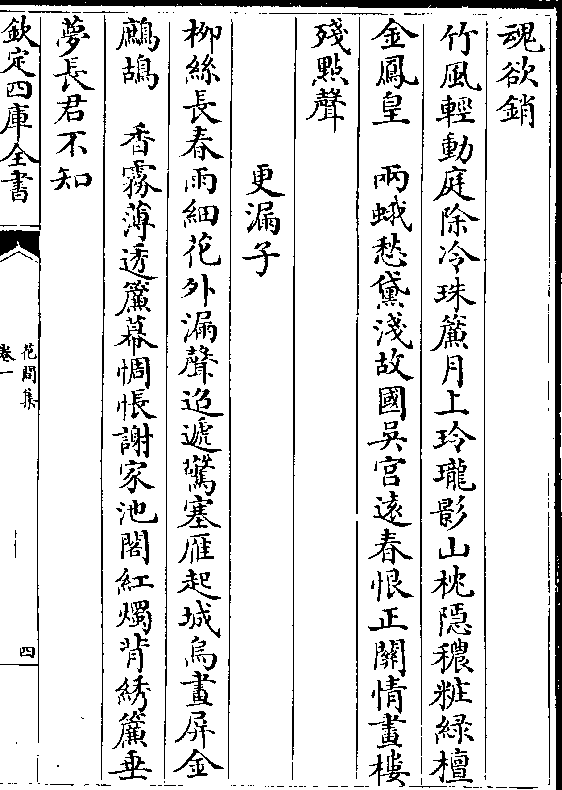 魂欲銷
竹風輕動庭除冷珠簾月上玲瓏影山枕隱穠粧綠檀
金鳳皇　兩蛾愁黛淺故國吳宮遠春恨正關情畫樓
殘點聲
更漏子
柳絲長春雨細花外漏聲迢遞驚塞雁起城烏畫屏金
鷓鴣　香霧薄透簾幕惆悵謝家池閣紅燭背綉簾垂
夢長君不知
欽定四庫全書
花間集
卷一
四